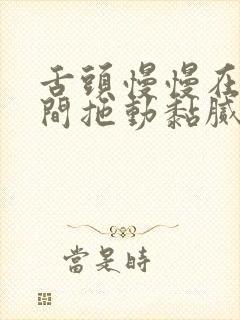 舌頭慢慢在
間拖動黏膩
當是時